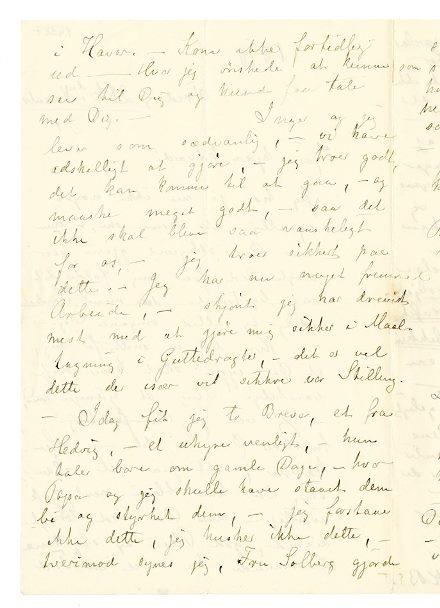 i Haven. — Kom ikke fortidlig
ud — Hvor jeg önskede at kunne
see til Dig og kunde faa tale
med Dig. — Inga og jeg
lever som sædvanlig, — vi have
adskelligt at gjöre, — jeg troer godt,
det kan komme til at gaae, — og
maaske meget godt, — saa det
ikke skal blive saa vanskeligt
for os, — jeg troer sikkert paa
dette. — Jeg har nu meget fremmed
Arbeide, — skjönt jeg har drevet
mest med at gjöre mig sikker i Maal-
tagning, i Guttedragter, — det er vel
dette der især vil sikkre vor Stilling.
— Idag fik jeg to Breve, et fra
Hedvig, — et uhyre venligt, — hun
taler bare om gamle Dage, — hvor
Papa og jeg skulle have staaet dem
bi og styrket dem, — jeg forstaaer
ikke dette, jeg husker ikke dette, —
tverimod synes jeg, Fru Solberg gjorde